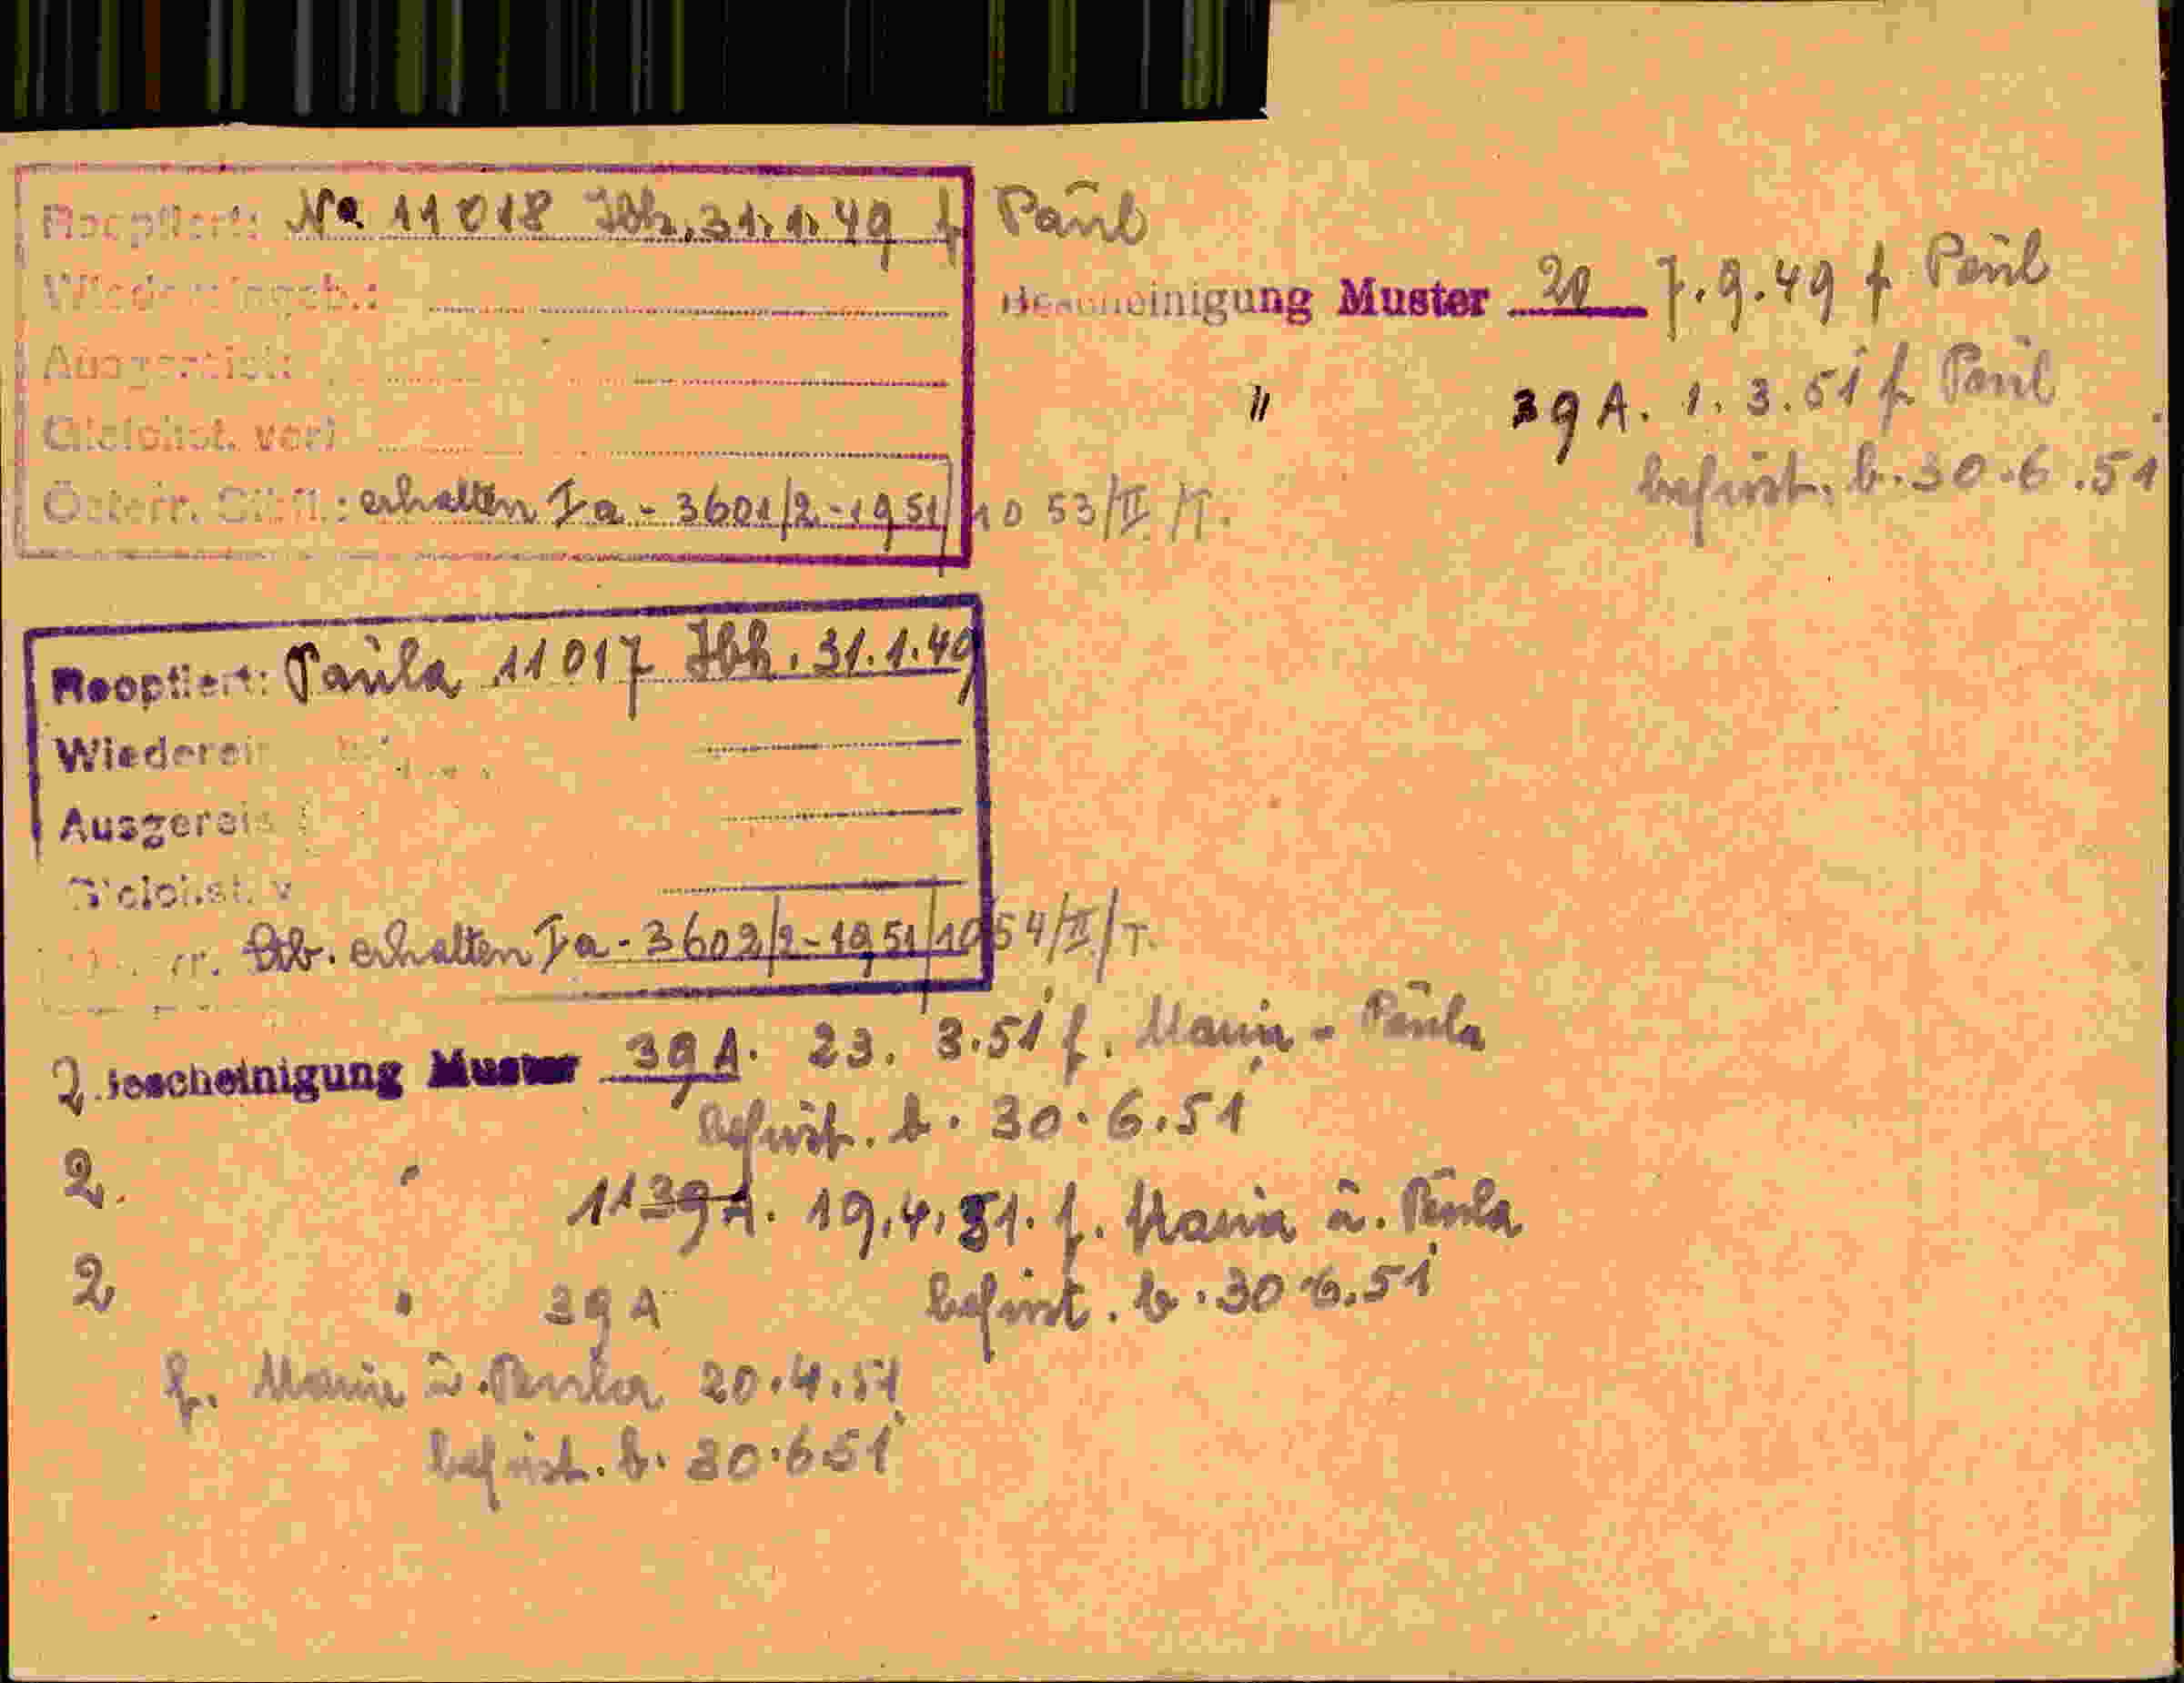 Reoptiert: No 11018 Ibk. 31.1.49 f Paul
Wiedereingeb.:
Ausgereist:
Gleichst. verl
Österr. Stbft.: erhalten Ia - 3601/2 - 1951/1053/II/T.
Bescheinigung Muster 20 7.9.49 f Paul
" 39 A. 1.3.51 f. Paul
befrist. b. 30.6.51
Reoptiert: Paula 11017 Ibk. 31.1.49
Wiederei
Ausgereis
Gleichst. v
rr. Stb. erhalten Ia - 3602/2 - 1951/1054/II/T.
2. Bescheinigung Muster 39 A. 23. 3.51 f. Maria - Paula
befrist. b. 30.6.51
2. " 11 39 A. 19.4.51. f. Maria u. Paula
2 " 39 A befrist. b. 30.6.51
f. Maria u. Paula 20.4.51
befrist. b. 30.6.51